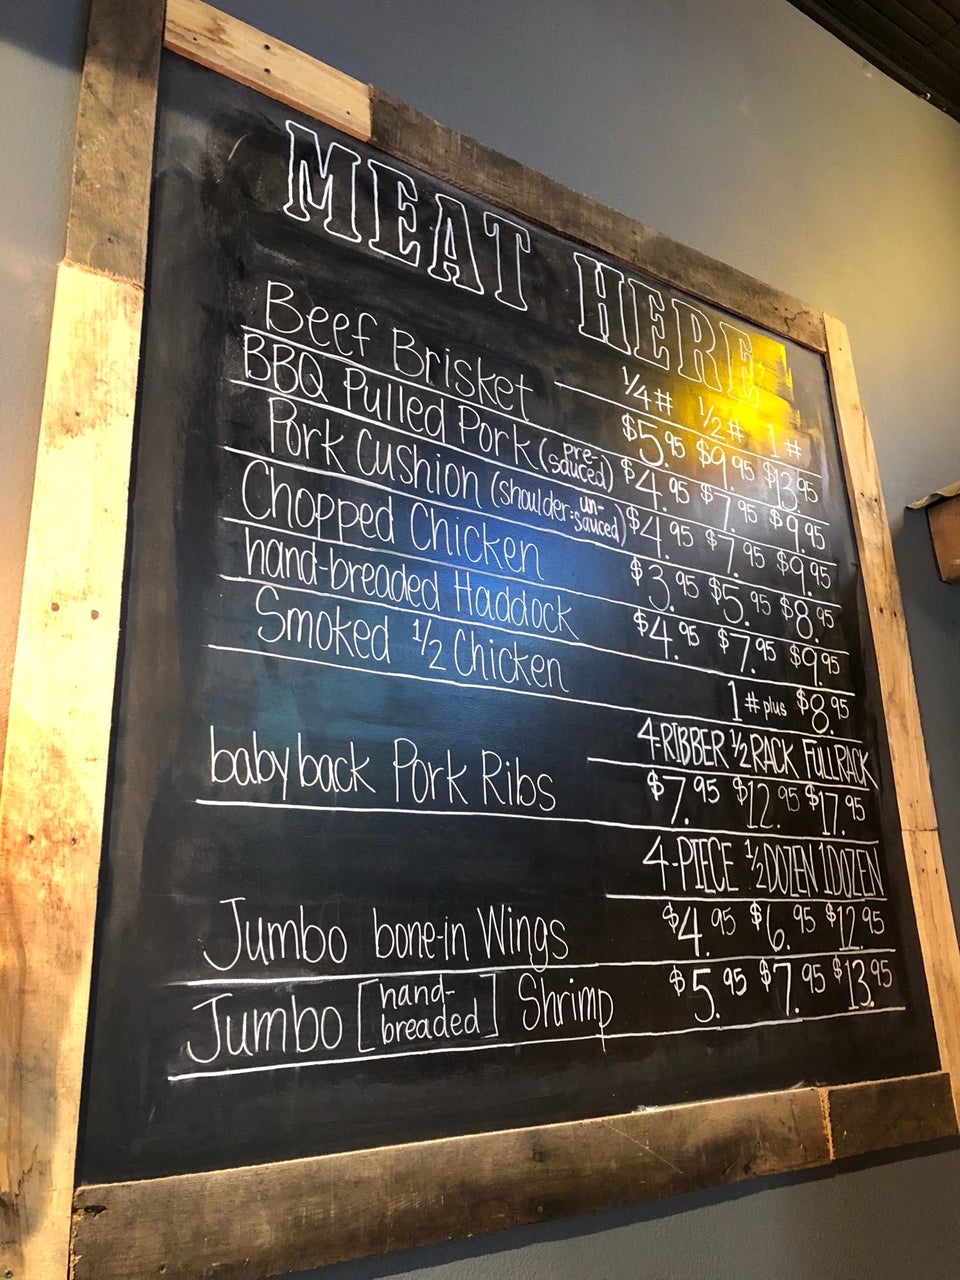 MEAT HERE
1/4# 1/2# 1#
Beef Brisket $5.95 $9.95 $13.95
BBQ Pulled Pork (pre-sauced) $4.95 $7.95 $9.95
Pork Cushion (shoulder: un-sauced) $4.95 $7.95 $9.95
Chopped Chicken $3.95 $5.95 $8.95
hand-breaded Haddock $4.95 $7.95 $9.95
Smoked 1/2 Chicken 1# plus $8.95
4-RIBBER 1/2 RACK FULL RACK
baby back Pork Ribs $7.95 $12.95 $17.95
4-PIECE 1/2 DOZEN 1 DOZEN
Jumbo bone-in Wings $4.95 $6.95 $12.95
Jumbo [hand-breaded] Shrimp $5.95 $7.95 $13.95